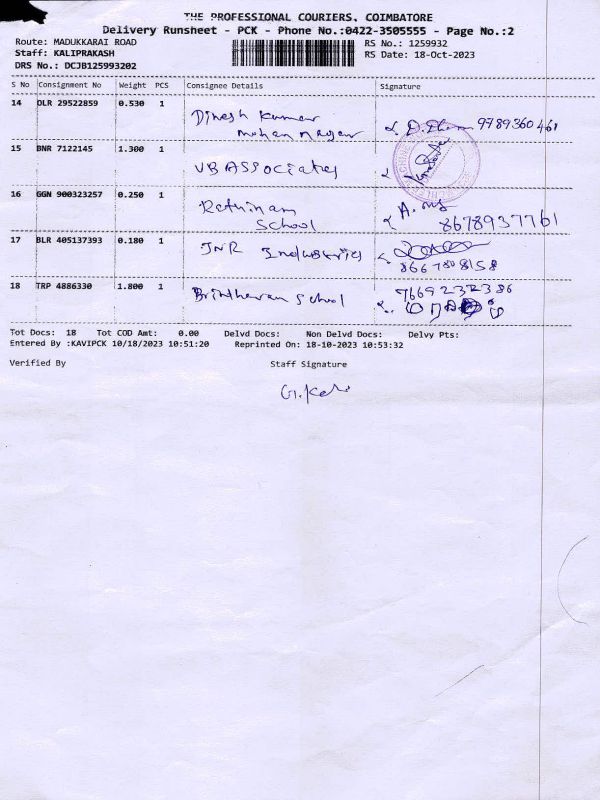 THE PROFESSIONAL COURIERS, COIMBATORE
Delivery Runsheet - PCK - Phone No.:0422-3505555 - Page No.:2
Route: MADUKKARAI ROAD RS No.: 1259932
Staff: KALIPRAKASH RS Date: 18-Oct-2023
DRS No.: DCJB125993202
S No Consignment No Weight PCS Consignee Details Signature
14 DLR 29522859 0.530 1
Dinesh Kumar 9789360461
mohan nagar
15 BNR 7122145 1.300 1
VB ASSociates
16 GGN 900323257 0.250 1
Rathinam
School 8678937761
17 BLR 405137393 0.180 1
JNR Industries
8667808158
18 TRP 4886330 1.800 1 7669232386
Brindhavan School
Tot Docs: 18 Tot COD Amt: 0.00 Delvd Docs: Non Delvd Docs: Delvy Pts:
Entered By :KAVIPCK 10/18/2023 10:51:20 Reprinted On: 18-10-2023 10:53:32
Verified By Staff Signature